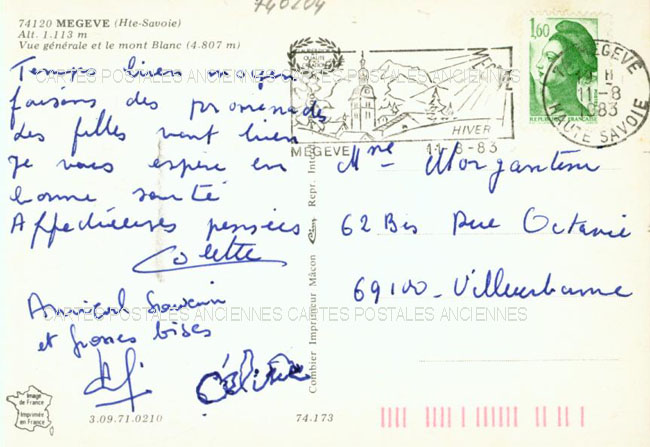 740204
74120 MEGEVE (Hte-Savoie)
Alt. 1.113 m
Vue générale et le mont Blanc (4.807 m)
Temps bien moyen
faisons des promenades
les filles vont bien
Je vous espère en
bonne santé
Affectueuses pensées
Colette
Amical Souvenir
et grosses bises
Céline
MEGEVE
HIVER
MEGEVE 11-8-83
1,60
REPUBLIQUE FRANÇAISE
74 MEGEVE
19 H
11-8
1983
HAUTE SAVOIE
Mme Morgantini
62 Bis Rue Octavie
69100 - Villeurbanne
CARTES POSTALES ANCIENNES CARTES POSTALES ANCIENNES
CARTES POSTALES ANCIENNES CARTES POSTALES ANCIENNES
Combier Imprimeur Mâcon Cim Repr. Interd.
Image
de France
Imprimée
en France
3.09.71.0210
74.173